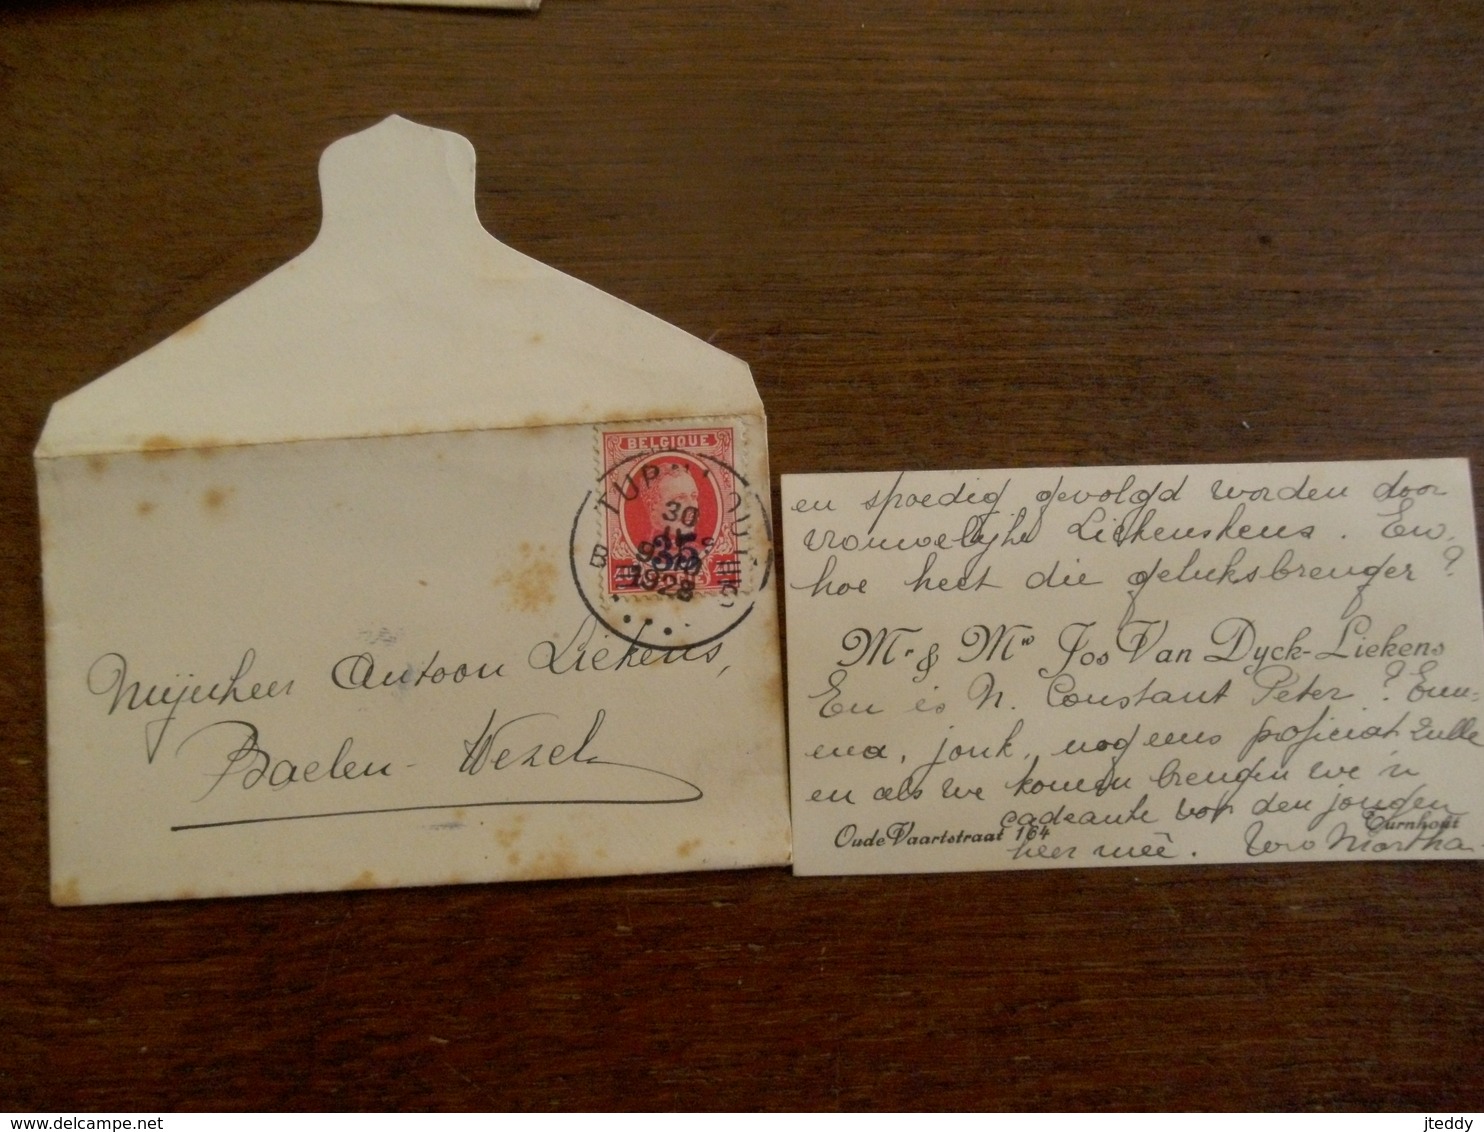 BELGIQUE
TURNHOUT
30
1928
35
Mijnheer Antoon Liekens,
Baelen-Wezel
en spoedig gevolgd worden door
vrouwelijke Liekenskens. En,
hoe heet die geluksbrenger?
Mr & Mw Jos Van Dyck-Liekens
En is N. Constant Peter? Emm-
ena, jonk, nog eens proficiat zulle
en als we komen brengen we 'n
cadeautje vor den jongen
Oude Vaartstraat 164 Turnhout
heer mêe. Martha
delcampe.net
jteddy